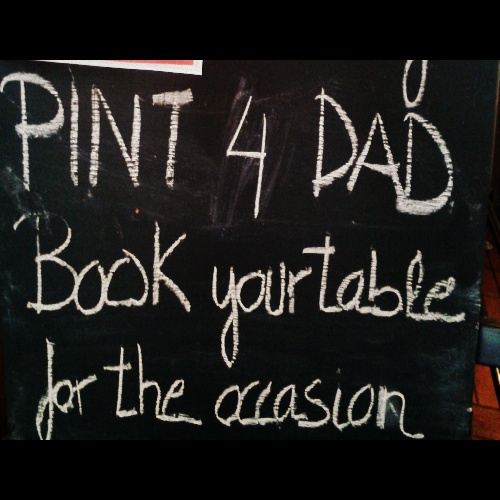 PINT 4 DAD
Book your table
for the occasion